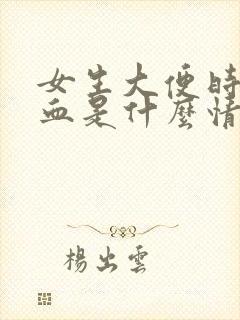 女生大便時
血是什麼情
楊出雲